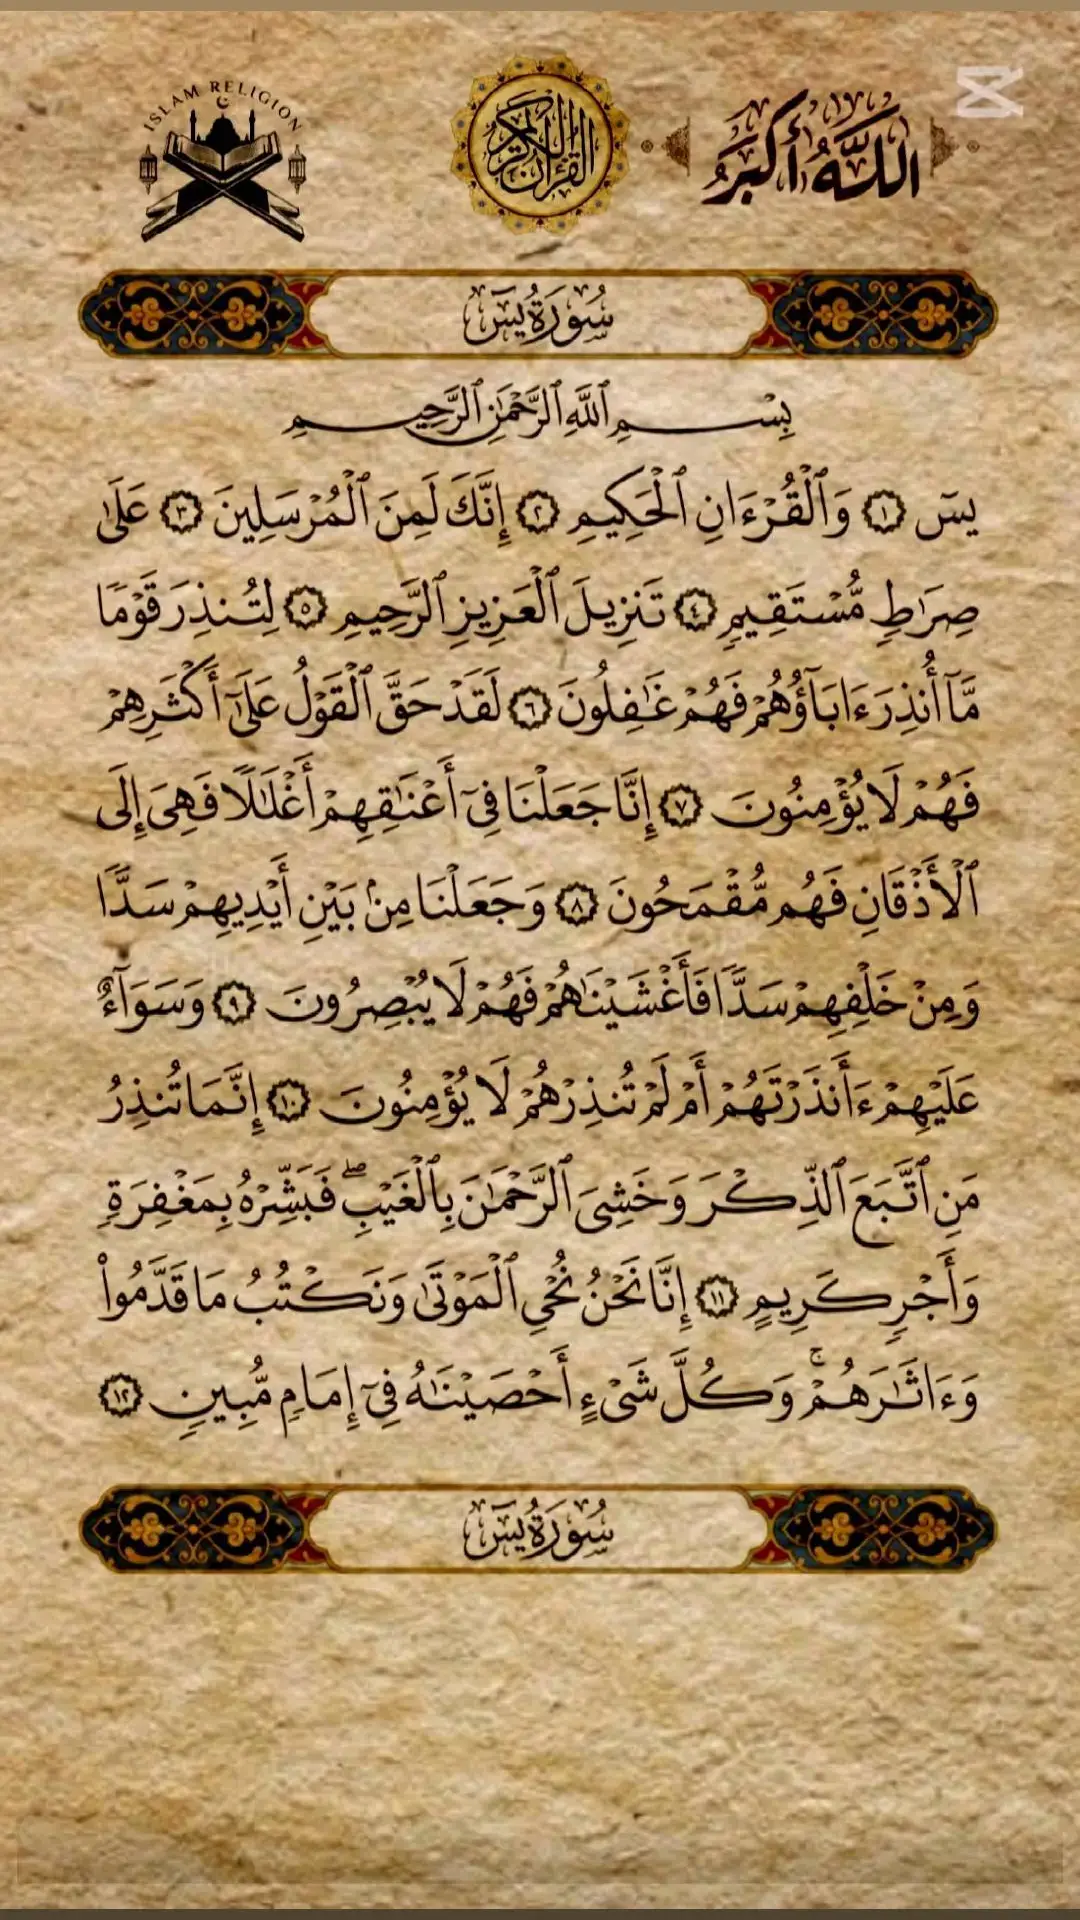 ISLAM RELIGION
القرآن الكريم
اللَّهُ أَكْبَرُ
سُورَةُ يسٓ
بِسْمِ ٱللَّهِ ٱلرَّحْمَٰنِ ٱلرَّحِيمِ
يسٓ ١ وَٱلْقُرْءَانِ ٱلْحَكِيمِ ٢ إِنَّكَ لَمِنَ ٱلْمُرْسَلِينَ ٣ عَلَىٰ
صِرَٰطٍ مُّسْتَقِيمٍ ٤ تَنزِيلَ ٱلْعَزِيزِ ٱلرَّحِيمِ ٥ لِتُنذِرَ قَوْمًا
مَّآ أُنذِرَ ءَابَآؤُهُمْ فَهُمْ غَٰفِلُونَ ٦ لَقَدْ حَقَّ ٱلْقَوْلُ عَلَىٰٓ أَكْثَرِهِمْ
فَهُمْ لَا يُؤْمِنُونَ ٧ إِنَّا جَعَلْنَا فِىٓ أَعْنَٰقِهِمْ أَغْلَٰلًا فَهِىَ إِلَى
ٱلْأَذْقَانِ فَهُم مُّقْمَحُونَ ٨ وَجَعَلْنَا مِنۢ بَيْنِ أَيْدِيهِمْ سَدًّا
وَمِنْ خَلْفِهِمْ سَدًّا فَأَغْشَيْنَٰهُمْ فَهُمْ لَا يُبْصِرُونَ ٩ وَسَوَآءٌ
عَلَيْهِمْ ءَأَنذَرْتَهُمْ أَمْ لَمْ تُنذِرْهُمْ لَا يُؤْمِنُونَ ١٠ إِنَّمَا تُنذِرُ
مَنِ ٱتَّبَعَ ٱلذِّكْرَ وَخَشِىَ ٱلرَّحْمَٰنَ بِٱلْغَيْبِ ۖ فَبَشِّرْهُ بِمَغْفِرَةٍ
وَأَجْرٍ كَرِيمٍ ١١ إِنَّا نَحْنُ نُحْىِ ٱلْمَوْتَىٰ وَنَكْتُبُ مَا قَدَّمُوا۟
وَءَاثَٰرَهُمْ ۚ وَكُلَّ شَىْءٍ أَحْصَيْنَٰهُ فِىٓ إِمَامٍ مُّبِينٍ ١٢
سُورَةُ يسٓ